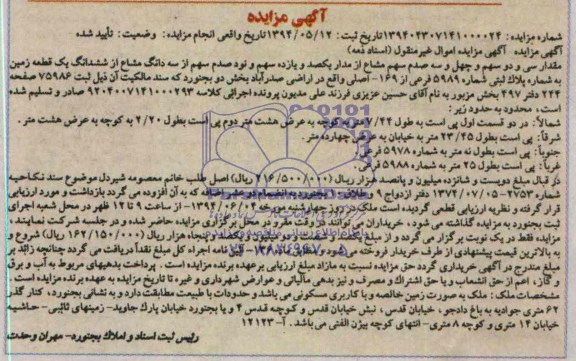 آگهی مزایده
شماره مزایده: ۱۳۹۴۰۴۳۰۷۱۴۱۰۰۰۰۲۴ تاریخ ثبت: ۱۳۹۴/۰۵/۱۲ تاریخ واقعی انجام مزایده: وضعیت: تأیید شده
آگهی مزایده آگهی مزایده اموال غیرمنقول (اسناد ذمه)
مقدار سی و دو سهم و چهل و سه صدم سهم مشاع از مدار یکصد و یازده سهم و نود صدم سهم از سه دانگ مشاع از ششدانگ یک قطعه زمین
به شماره پلاک ثبتی شماره ۵۹۸۹ فرعی از ۱۶۹- اصلی واقع در اراضی صدرآباد بخش دو بجنورد که سند مالکیت آن ذیل ثبت ۷۵۹۸۶ صفحه
۲۲۴ دفتر ۴۹۷ بخش مزبور به نام آقای حسین عزیزی فرزند علی مدیون پرونده اجرائی کلاسه ۹۲۰۴۰۰۷۱۴۱۰۰۰۲۹۳ صادر و تسلیم شده
است، محدود به حدود زیر:
شمالاً: در دو قسمت اول پی است به طول ۷/۴۴ متر به کوچه به عرض هشت متر دوم پی است بطول ۲/۲۰ به کوچه به عرض هشت متر.
شرقاً: پی است بطول ۲۳/۴۵ متر به خیابان به عرض چهارده متر.
جنوباً: پی است بطول نه متر به شماره ۵۹۷۸ فرعی
غرباً: پی است بطول ۲۵ متر به شماره ۵۹۸۸ فرعی
در قبال مبلغ دویست و شانزده میلیون و پانصد هزار ریال (۲۱۶/۵۰۰/۰۰۰ ریال) اصل طلب خانم معصومه شیردل موضوع سند نکاحیه
۲۷۵۳-۱۳۷۲/۰۷/۰۵ دفتر ازدواج ۹ و طلاق ۱۰ بجنورد به انضمام نیم عشر اضافه که به آن افزوده می گردد بازداشت و مورد ارزیابی
قرار گرفته و نظریه ارزیابی قطعی گردیده است ملک روز چهارشنبه مورخ ۱۳۹۴/۰۶/۰۴- از ساعت ۹ تا ۱۲ ظهر در محل شعبه اجرای
ثبت بجنورد به مزایده گذاشته می شود، خریداران می توانند در وقت مقرر در محل برگزاری مزایده حاضر شده و در جلسه شرکت نمایند.
مزایده فقط در یک نوبت برگزار می گردد و از مبلغ یکصد و شصت و دو میلیون و یکصد و پنجاه هزار ریال (۱۶۲/۱۵۰/۰۰۰ ریال) شروع و
به بالاترین قیمت پیشنهادی از طرف خریدار فروخته می شود و مطابق ماده آئین نامه اجراء کل مبلغ نقداً دریافت می گردد چنانچه زائد بر
مبلغ مندرج در آگهی خریداری گردد حق مزایده نسبت به مازاد مبلغ ارزیابی برعهده برنده مزایده است. پرداخت بدهیهای مربوط به آب و برق
و گاز، اعم از حق انشعاب و یا حق اشتراک و مصرف و نیز بدهی مالیاتی و عوارض شهرداری و غیره تا تاریخ مزایده به عهده برنده مزایده است.
مشخصات ملک: ملک به صورت زمین خالصه و با کاربری مسکونی می باشد و حدودات با طبیعت مطابقت دارد و به نشانی بجنورد، کنار گذر
۶۲ متری جوادیه به باغ دادجو، خیابان قدس، نبش خیابان قدس و کوچه قدس ۲ و یا بجنورد خیابان پارک جاوید- زمینهای تائبی- حاشیه
خیابان ۱۴ متری و کوچه ۸ متری- انتهای کوچه بیژن الفتی می باشد. آ- ۱۲۱۲۳
رئیس ثبت اسناد و املاک بجنورد- مهران وحدت